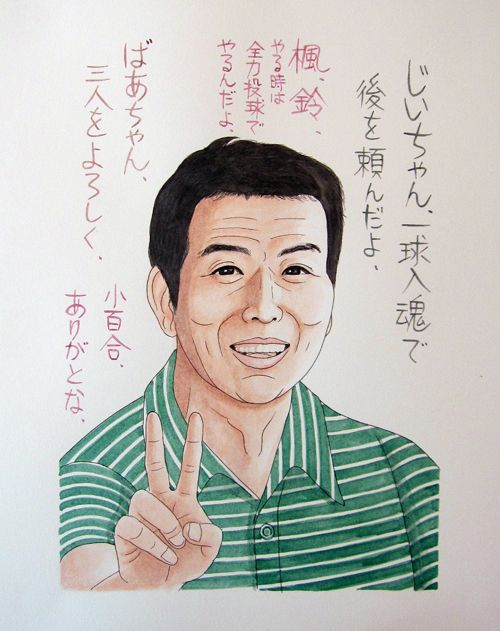 じいちゃん、一球入魂で
後を頼んだよ、
楓、鈴、
やる時は
全力投球で
やるんだよ、
ばあちゃん、
三人をよろしく、
小百合、
ありがとな、